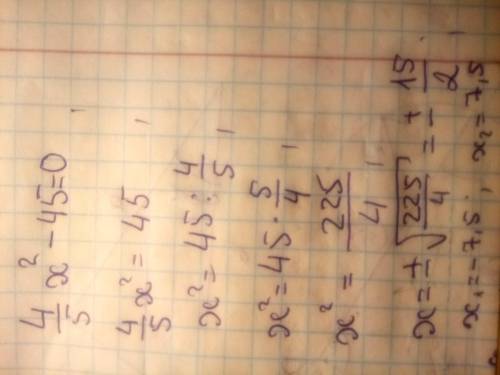 4/5 x² - 45 = 0,
4/5 x² = 45,
x² = 45 : 4/5,
x² = 45 · 5/4,
x² = 225/4,
x = ±√(225/4) = ± 15/2,
x₁ = -7,5; x₂ = 7,5